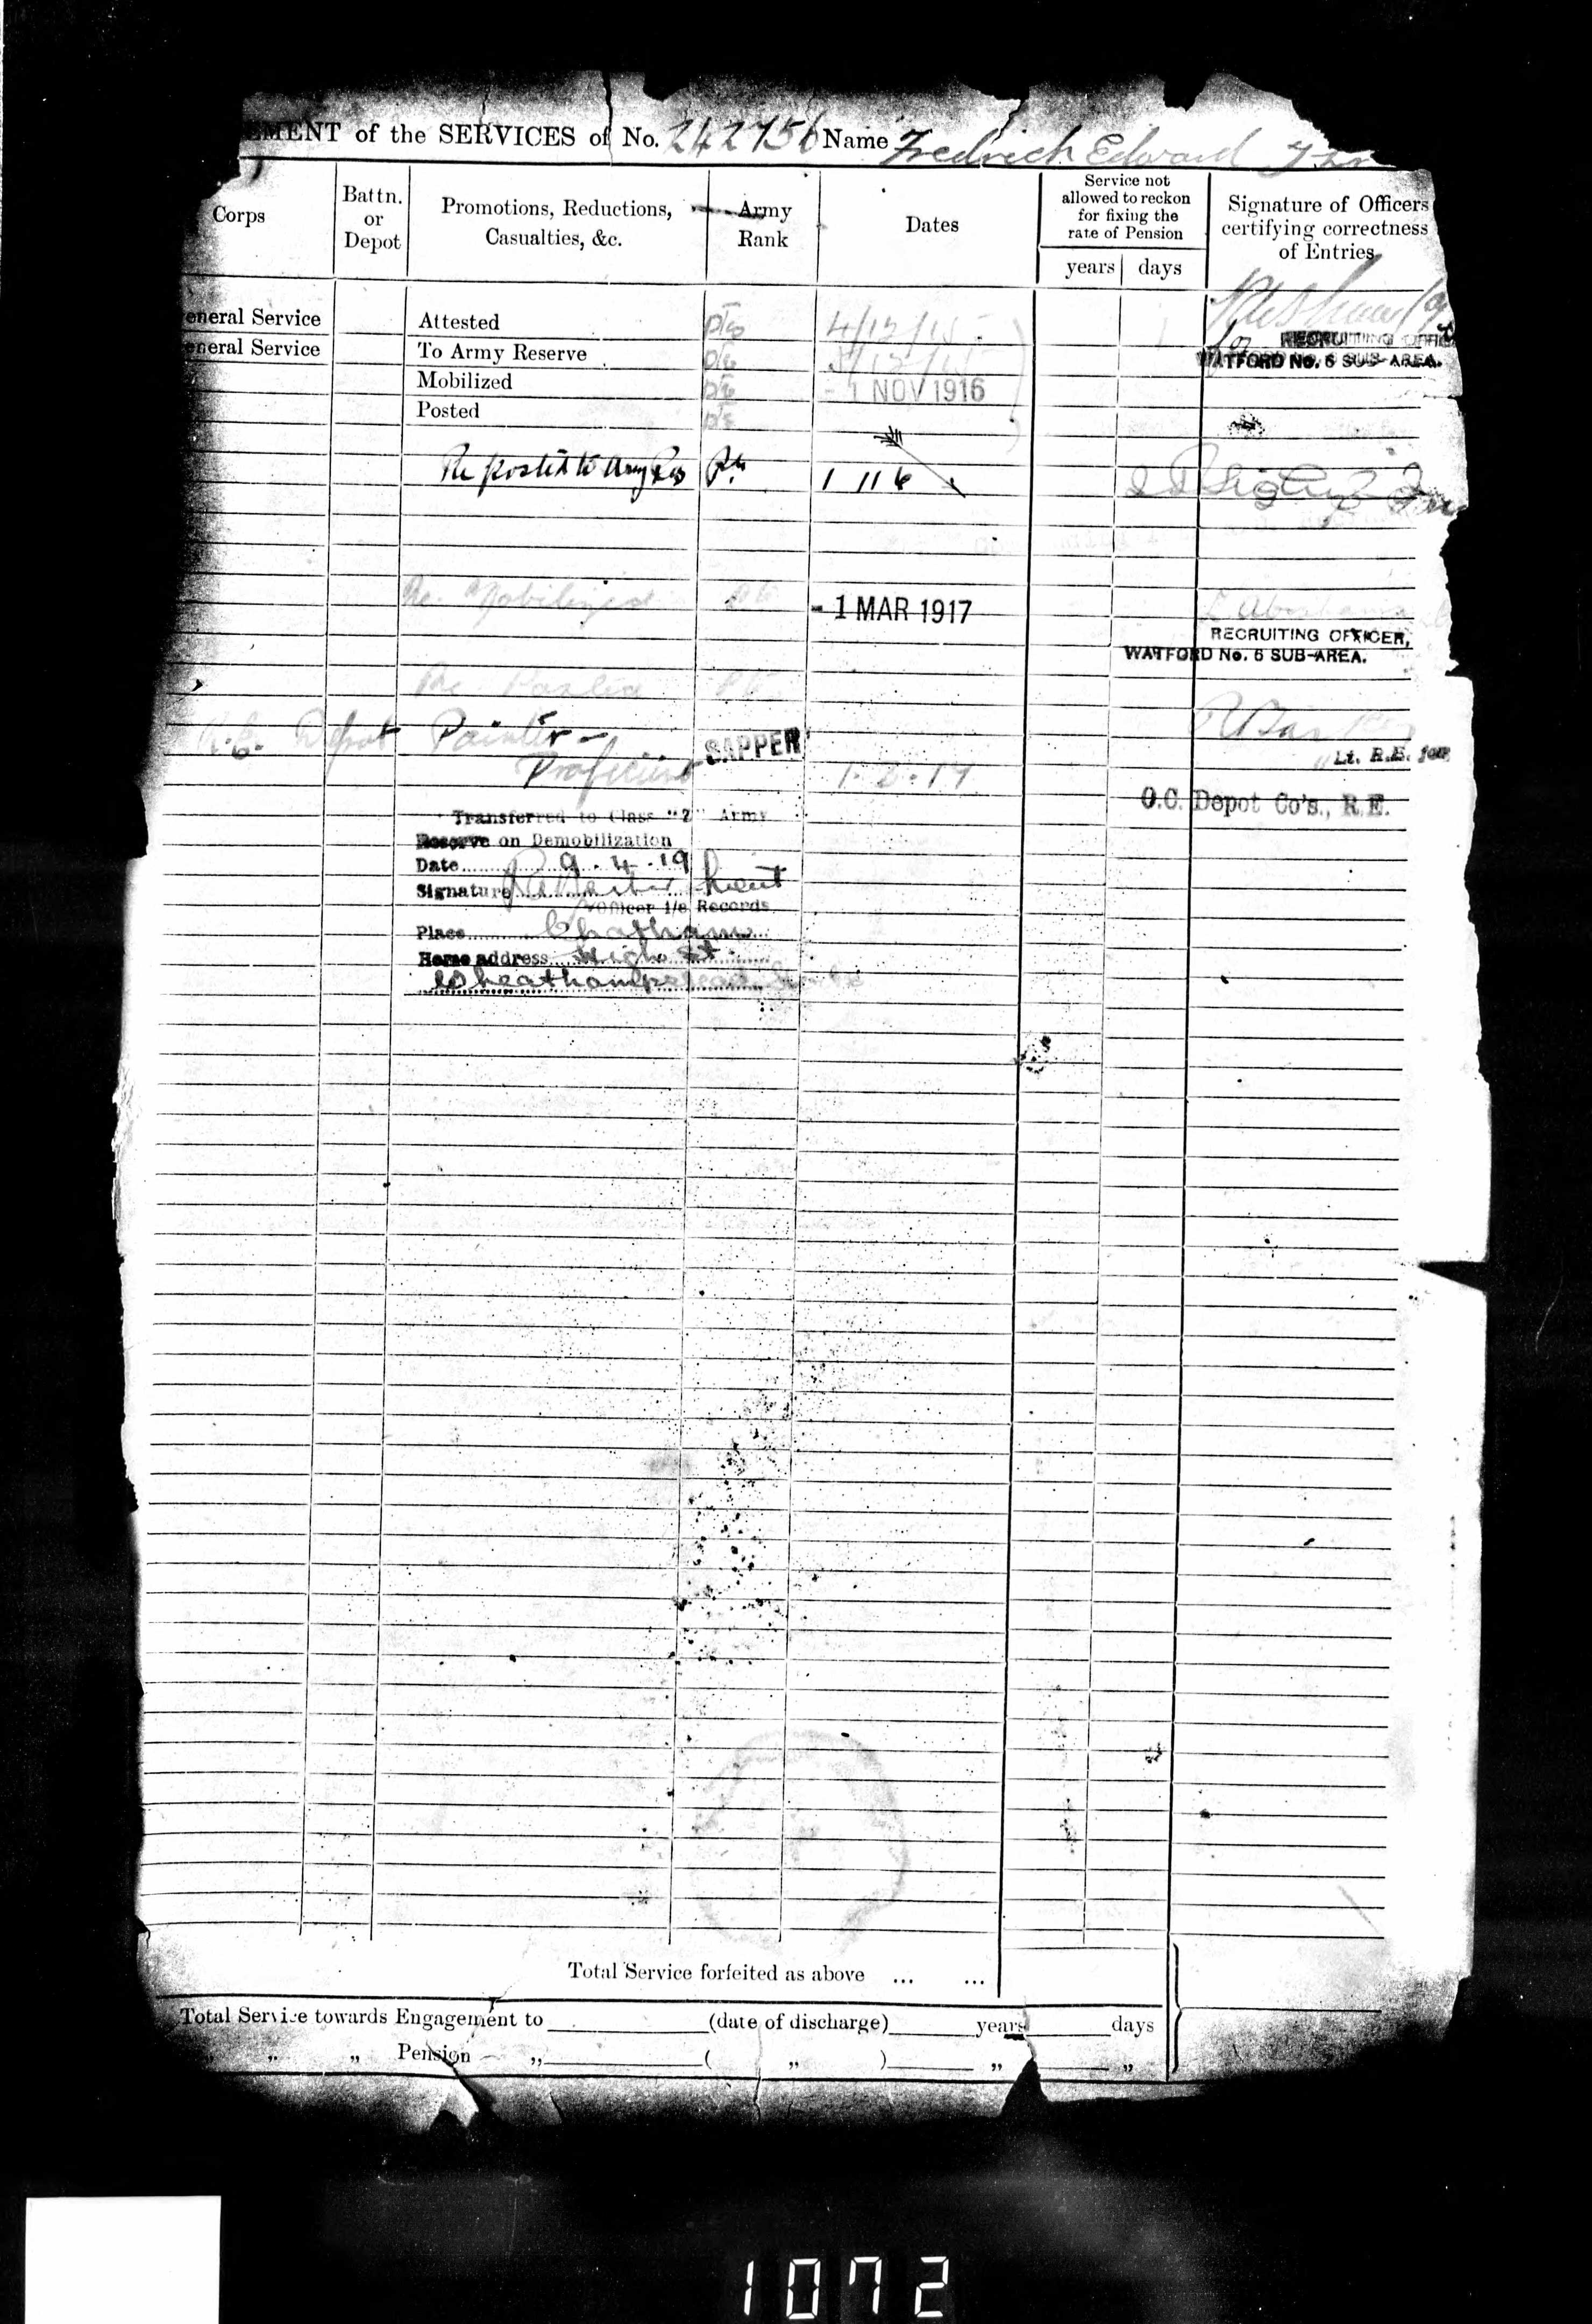 EMENT of the SERVICES of No. 242756 Name Fredrich Edward
Corps
Battn. or Depot
Promotions, Reductions, Casualties, &c.
Army Rank
Dates
Service not allowed to reckon for fixing the rate of Pension
years days
Signature of Officers certifying correctness of Entries
eneral Service Attested Pte 4/12/15
for RECRUITING OFFIC
eneral Service To Army Reserve Pte 5/12/15 WATFORD No. 6 SUB-AREA.
Mobilized Pte - 1 NOV 1916
Posted Pte
Re posted to Army Res Pte 1 11 6
Re. Mobilized Pte - 1 MAR 1917
RECRUITING OFFICER,
WATFORD No. 6 SUB-AREA.
Re Posted Pte
R.E. Depot Painter - SAPPER
Lt. R.E. for
Proficient 1. 3. 17
O.C. Depot Co's., R.E.
Transferred to Class "Z" Army
Reserve on Demobilization
Date 9.4.19
Signature Lieut
Officer i/c Records
Place Chatham
Home address High St
Wheathampstead
Total Service forfeited as above ... ...
Total Service towards Engagement to (date of discharge) years days
„ „ Pension „ ( „ ) „ „
1072